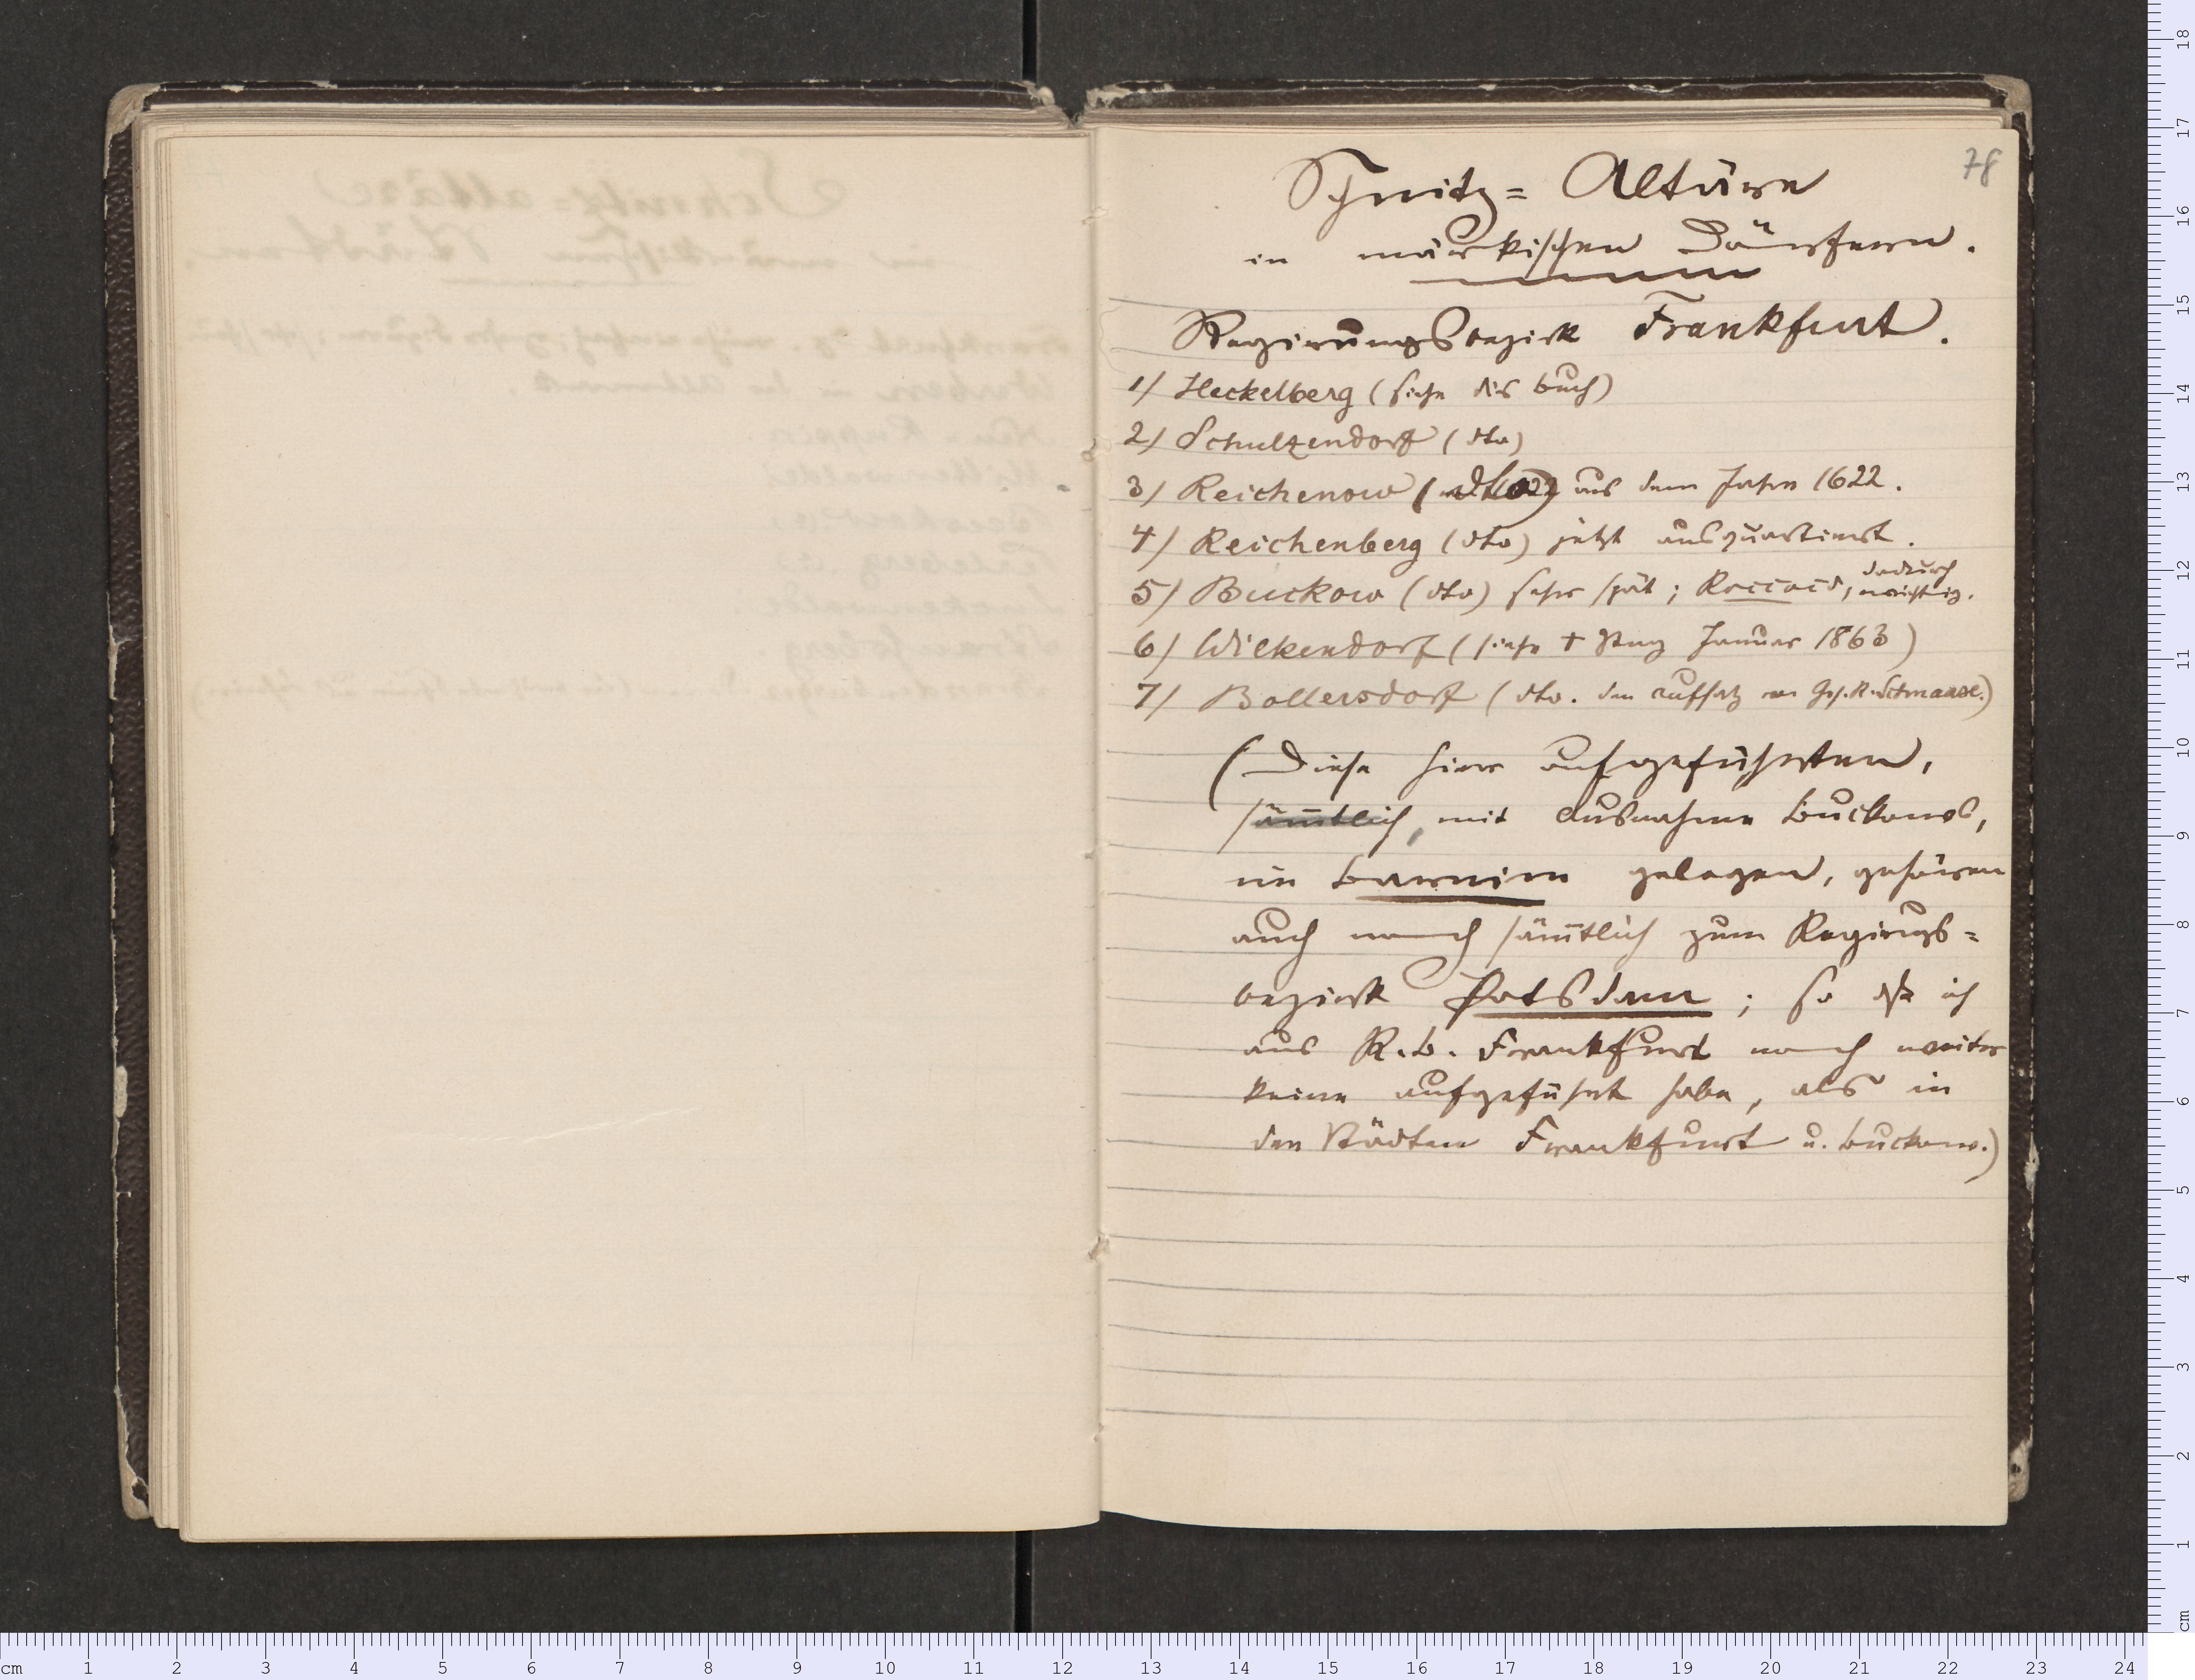 78
Schnitz=Altäre
in märkischen Dörfern.
Regierungsbezirk Frankfurt.
1) Heckelberg (siehe dies Buch)
2) Schultzendorf (dto)
3) Reichenow (dto) aus dem Jahre 1622.
4) Reichenberg (dto) jetzt ausquartiert.
5) Buckow (dto) sehr spät; Roccoco, dadurch
wichtig.
6) Wilkendorf (siehe † Ztng Januar 1863)
7) Bollersdorf (dto. den Aufsatz von Geh. R. Schnaase.)
(Diese hier aufgeführten,
säm̄tlich, mit Ausnahme Buckows,
im Barnim gelegen, gehören
auch noch säm̄tlich zum Regirugs=
bezirk Potsdam; so dß ich
aus R. B. Frankfurt noch weiter
keine aufgeführt habe, als in
den Städten Frankfurt u. Buckow.)
cm 1 2 3 4 5 6 7 8 9 10 11 12 13 14 15 16 17 18 19 20 21 22 23 24
cm 1 2 3 4 5 6 7 8 9 10 11 12 13 14 15 16 17 18